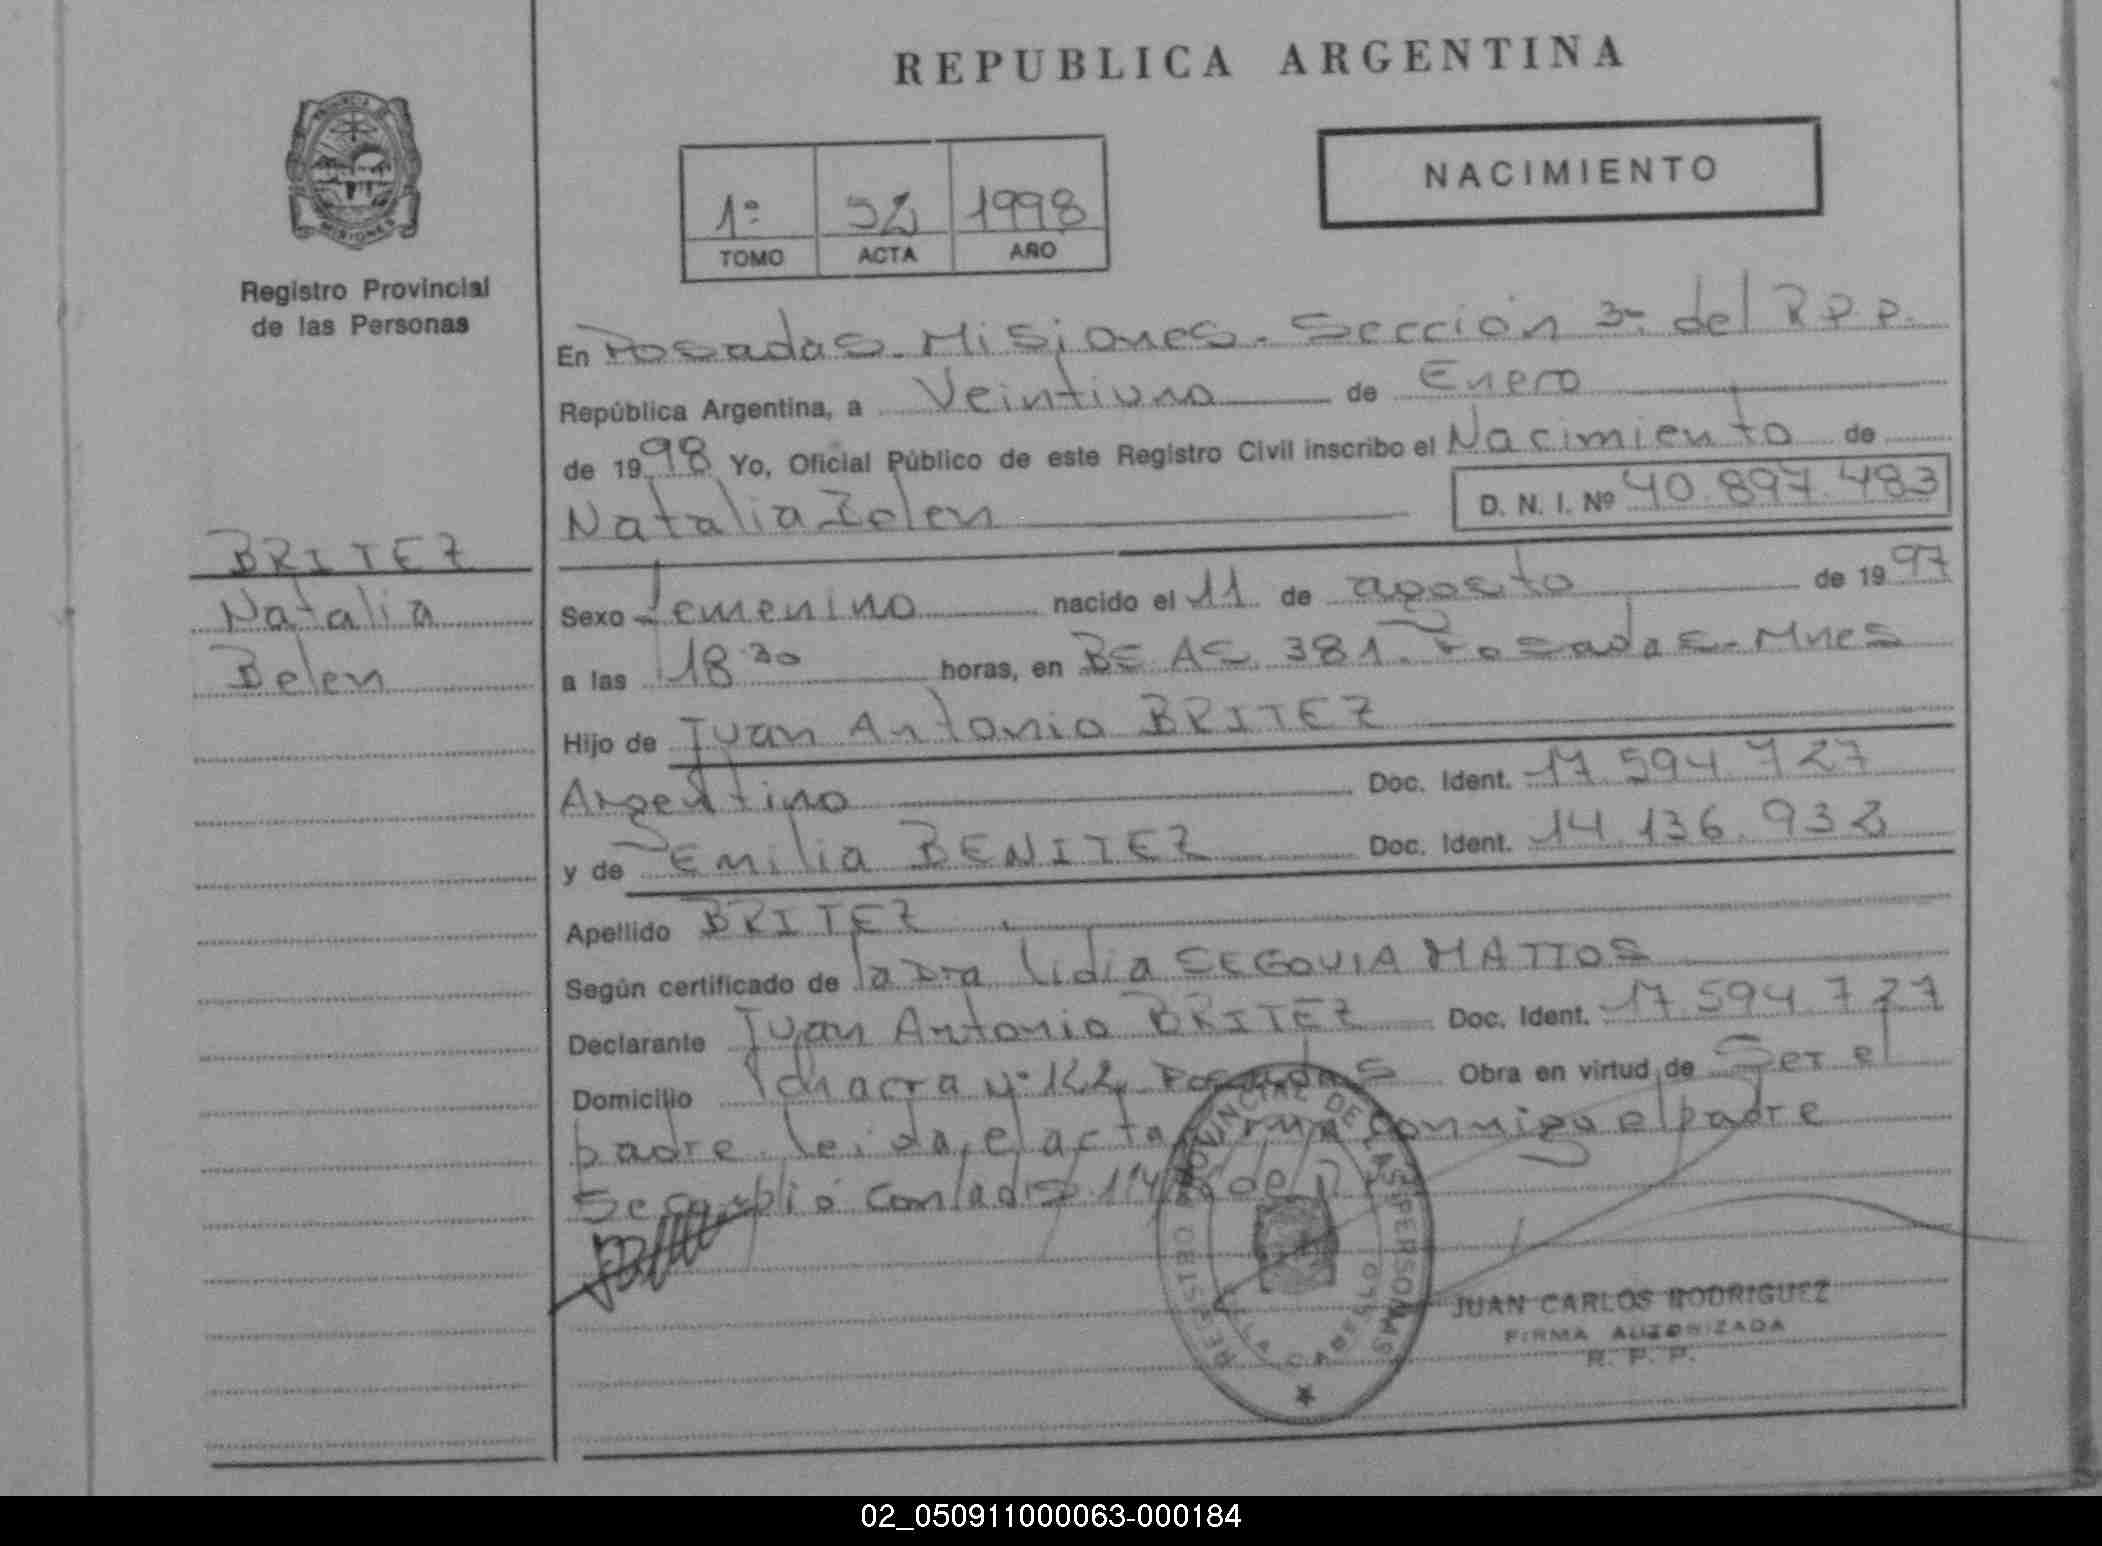 REPUBLICA ARGENTINA
NACIMIENTO
1º 1998
TOMO ACTA AÑO
Registro Provincial
de las Personas
En Posadas. Misiones. Sección 3ª del R.P.P.
República Argentina, a Veintiuno de Enero
de 1998 Yo, Oficial Público de este Registro Civil inscribo el Nacimiento de
Natalia Belen D. N. I. Nº 40.897.483
BRITEZ
Natalia
Belen
Sexo femenino nacido el 11 de agosto de 1997
a las 18 30 horas, en BS AS 381. Posadas-Mnes
Hijo de Juan Antonio BRITEZ
Argentino Doc. Ident. 17.594.727
y de Emilia BENITEZ Doc. Ident. 14.136.938
Apellido BRITEZ
Según certificado de la Dra Lidia SEGOVIA MATTOS
Declarante Juan Antonio BRITEZ Doc. Ident. 17.594.727
Domicilio Chacra Nº 122 Posadas Obra en virtud de Ser el
padre. leida el acta firma conmigo el padre
Se cumplió con la dis
REGISTRO PROVINCIAL DE LAS PERSONAS
JUAN CARLOS RODRIGUEZ
FIRMA AUTORIZADA
R. P. P.
02_050911000063-000184